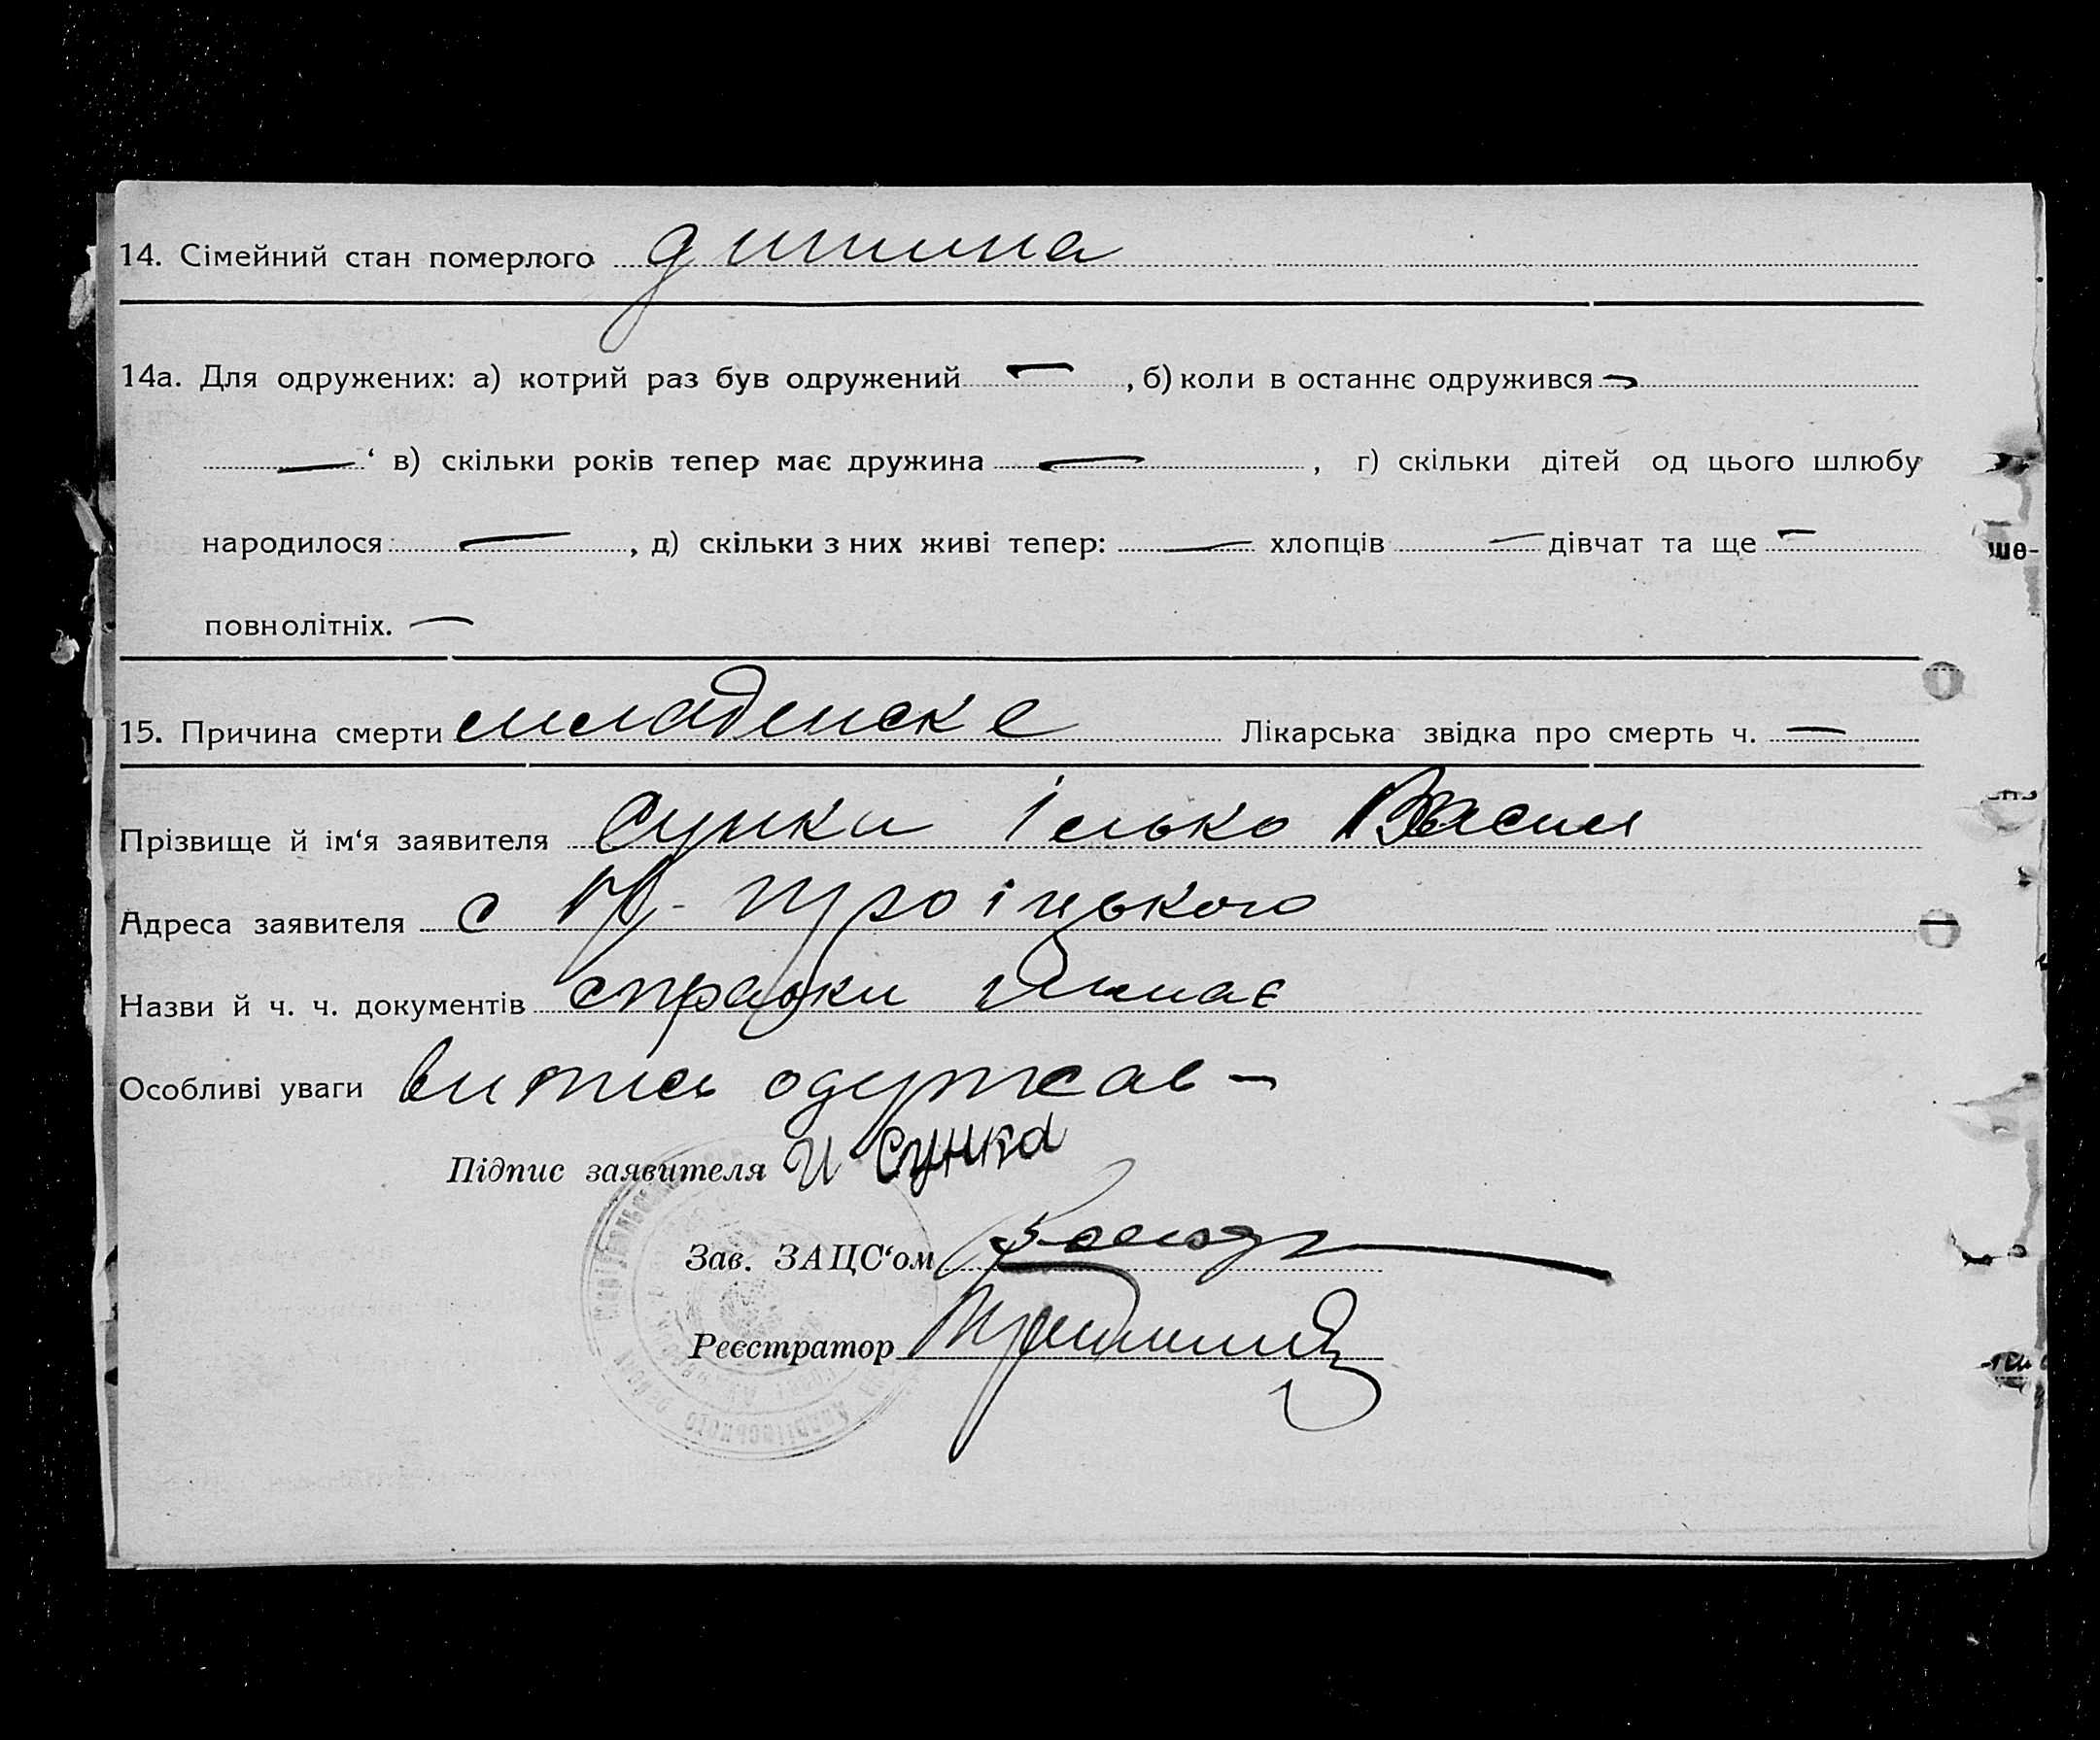 14. Сімейний стан померлого дитина
14а. Для одружених: а) котрий раз був одружений — , б) коли в останнє одружився —
— ‘ в) скільки років тепер має дружина — , г) скільки дітей од цього шлюбу
народилося — , д) скільки з них живі тепер: — хлопців — дівчат та ще —
повнолітніх. —
15. Причина смерти младенске Лікарська звідка про смерть ч. —
Прізвище й ім‘я заявителя Сунки Ілько Васил
Адреса заявителя с Троіцького
Назви й ч. ч. документів справки немає
Особливі уваги витпись одержав —
Підпис заявителя И Сунка
Зав. ЗАЦС‘ом
Реєстратор
ше-